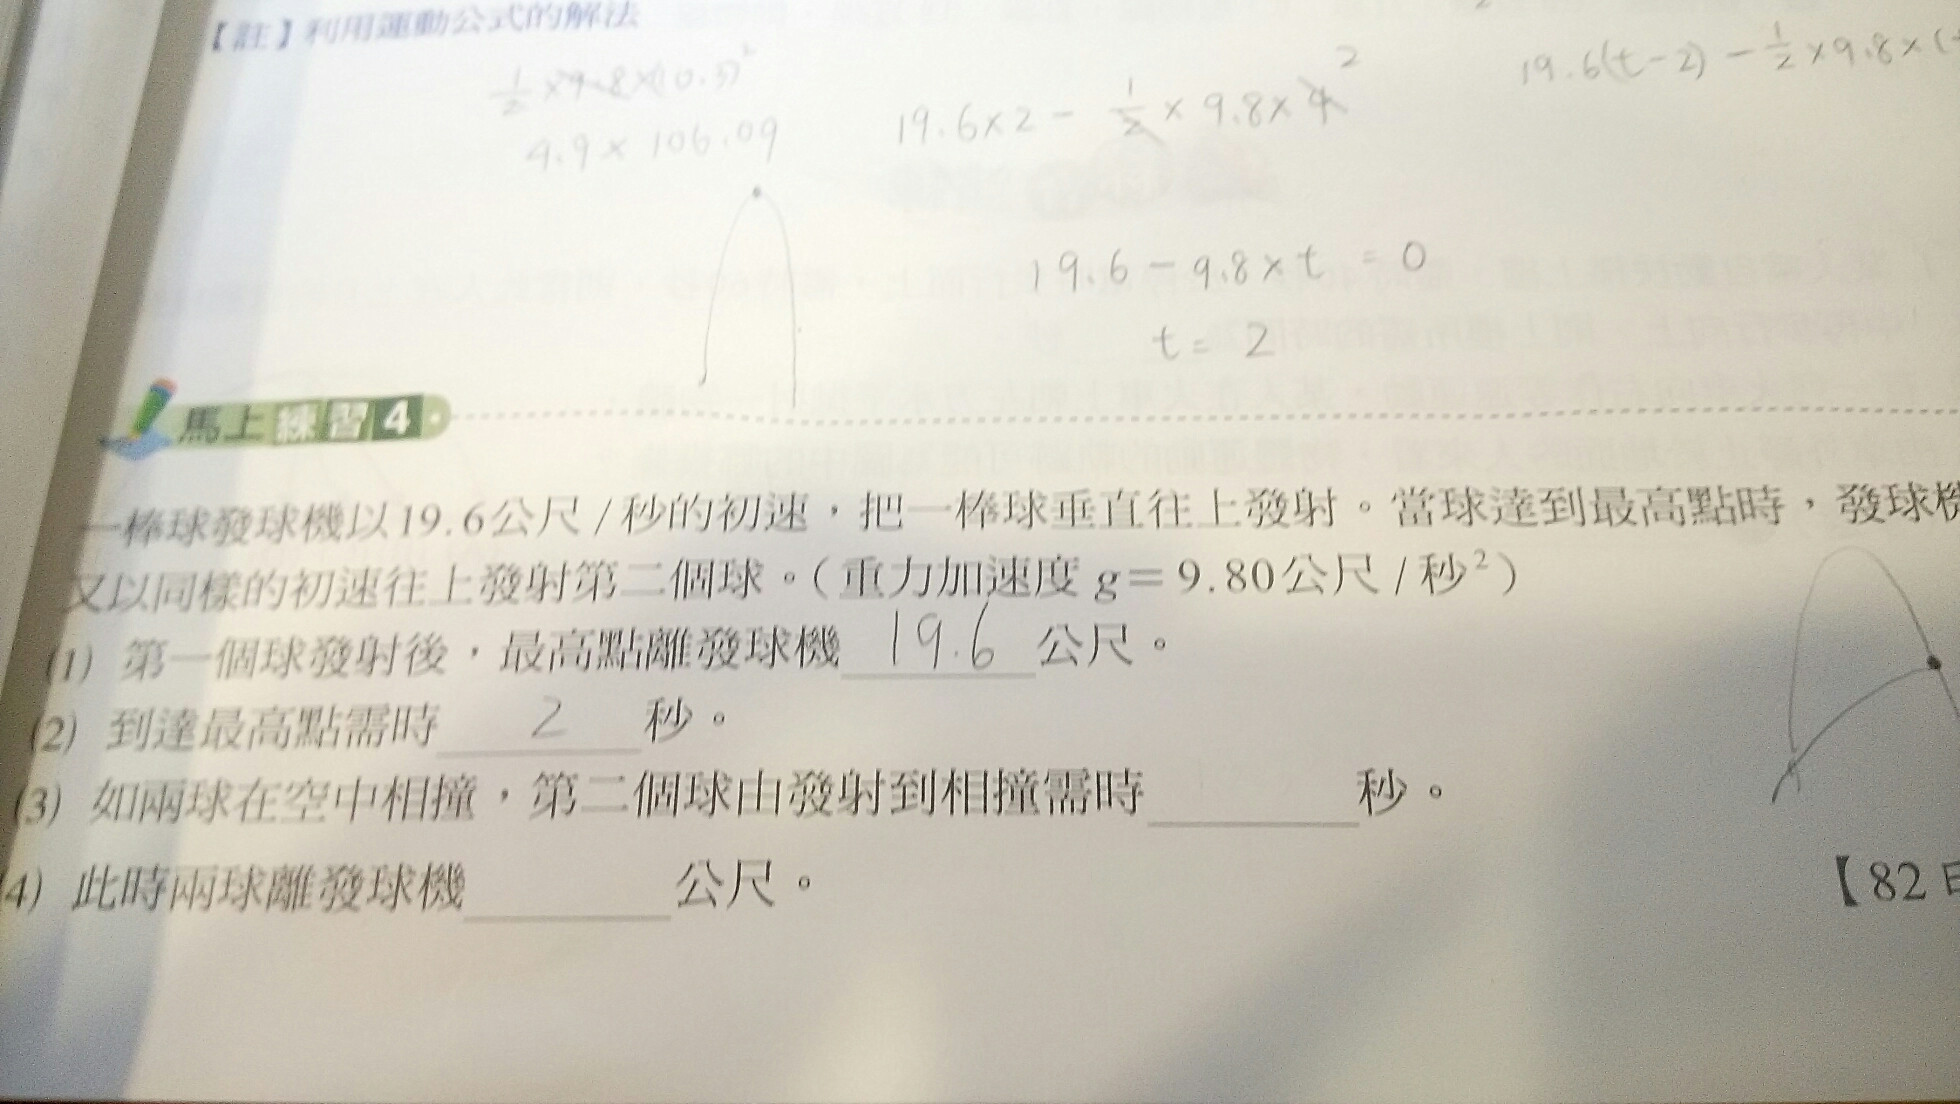 【註】利用運動公式的解法
½×9.8×(10.3)²
4.9×106.09
19.6×2-½×9.8×4 2
19.6(t-2)-½×9.8×(
19.6-9.8×t=0
t=2
馬上練習4
一棒球發球機以19.6公尺/秒的初速,把一棒球垂直往上發射。當球達到最高點時,發球機
又以同樣的初速往上發射第二個球。(重力加速度 g=9.80公尺/秒²)
(1) 第一個球發射後,最高點離發球機 19.6 公尺。
(2) 到達最高點需時 2 秒。
(3) 如兩球在空中相撞,第二個球由發射到相撞需時______秒。
4) 此時兩球離發球機______公尺。
【82